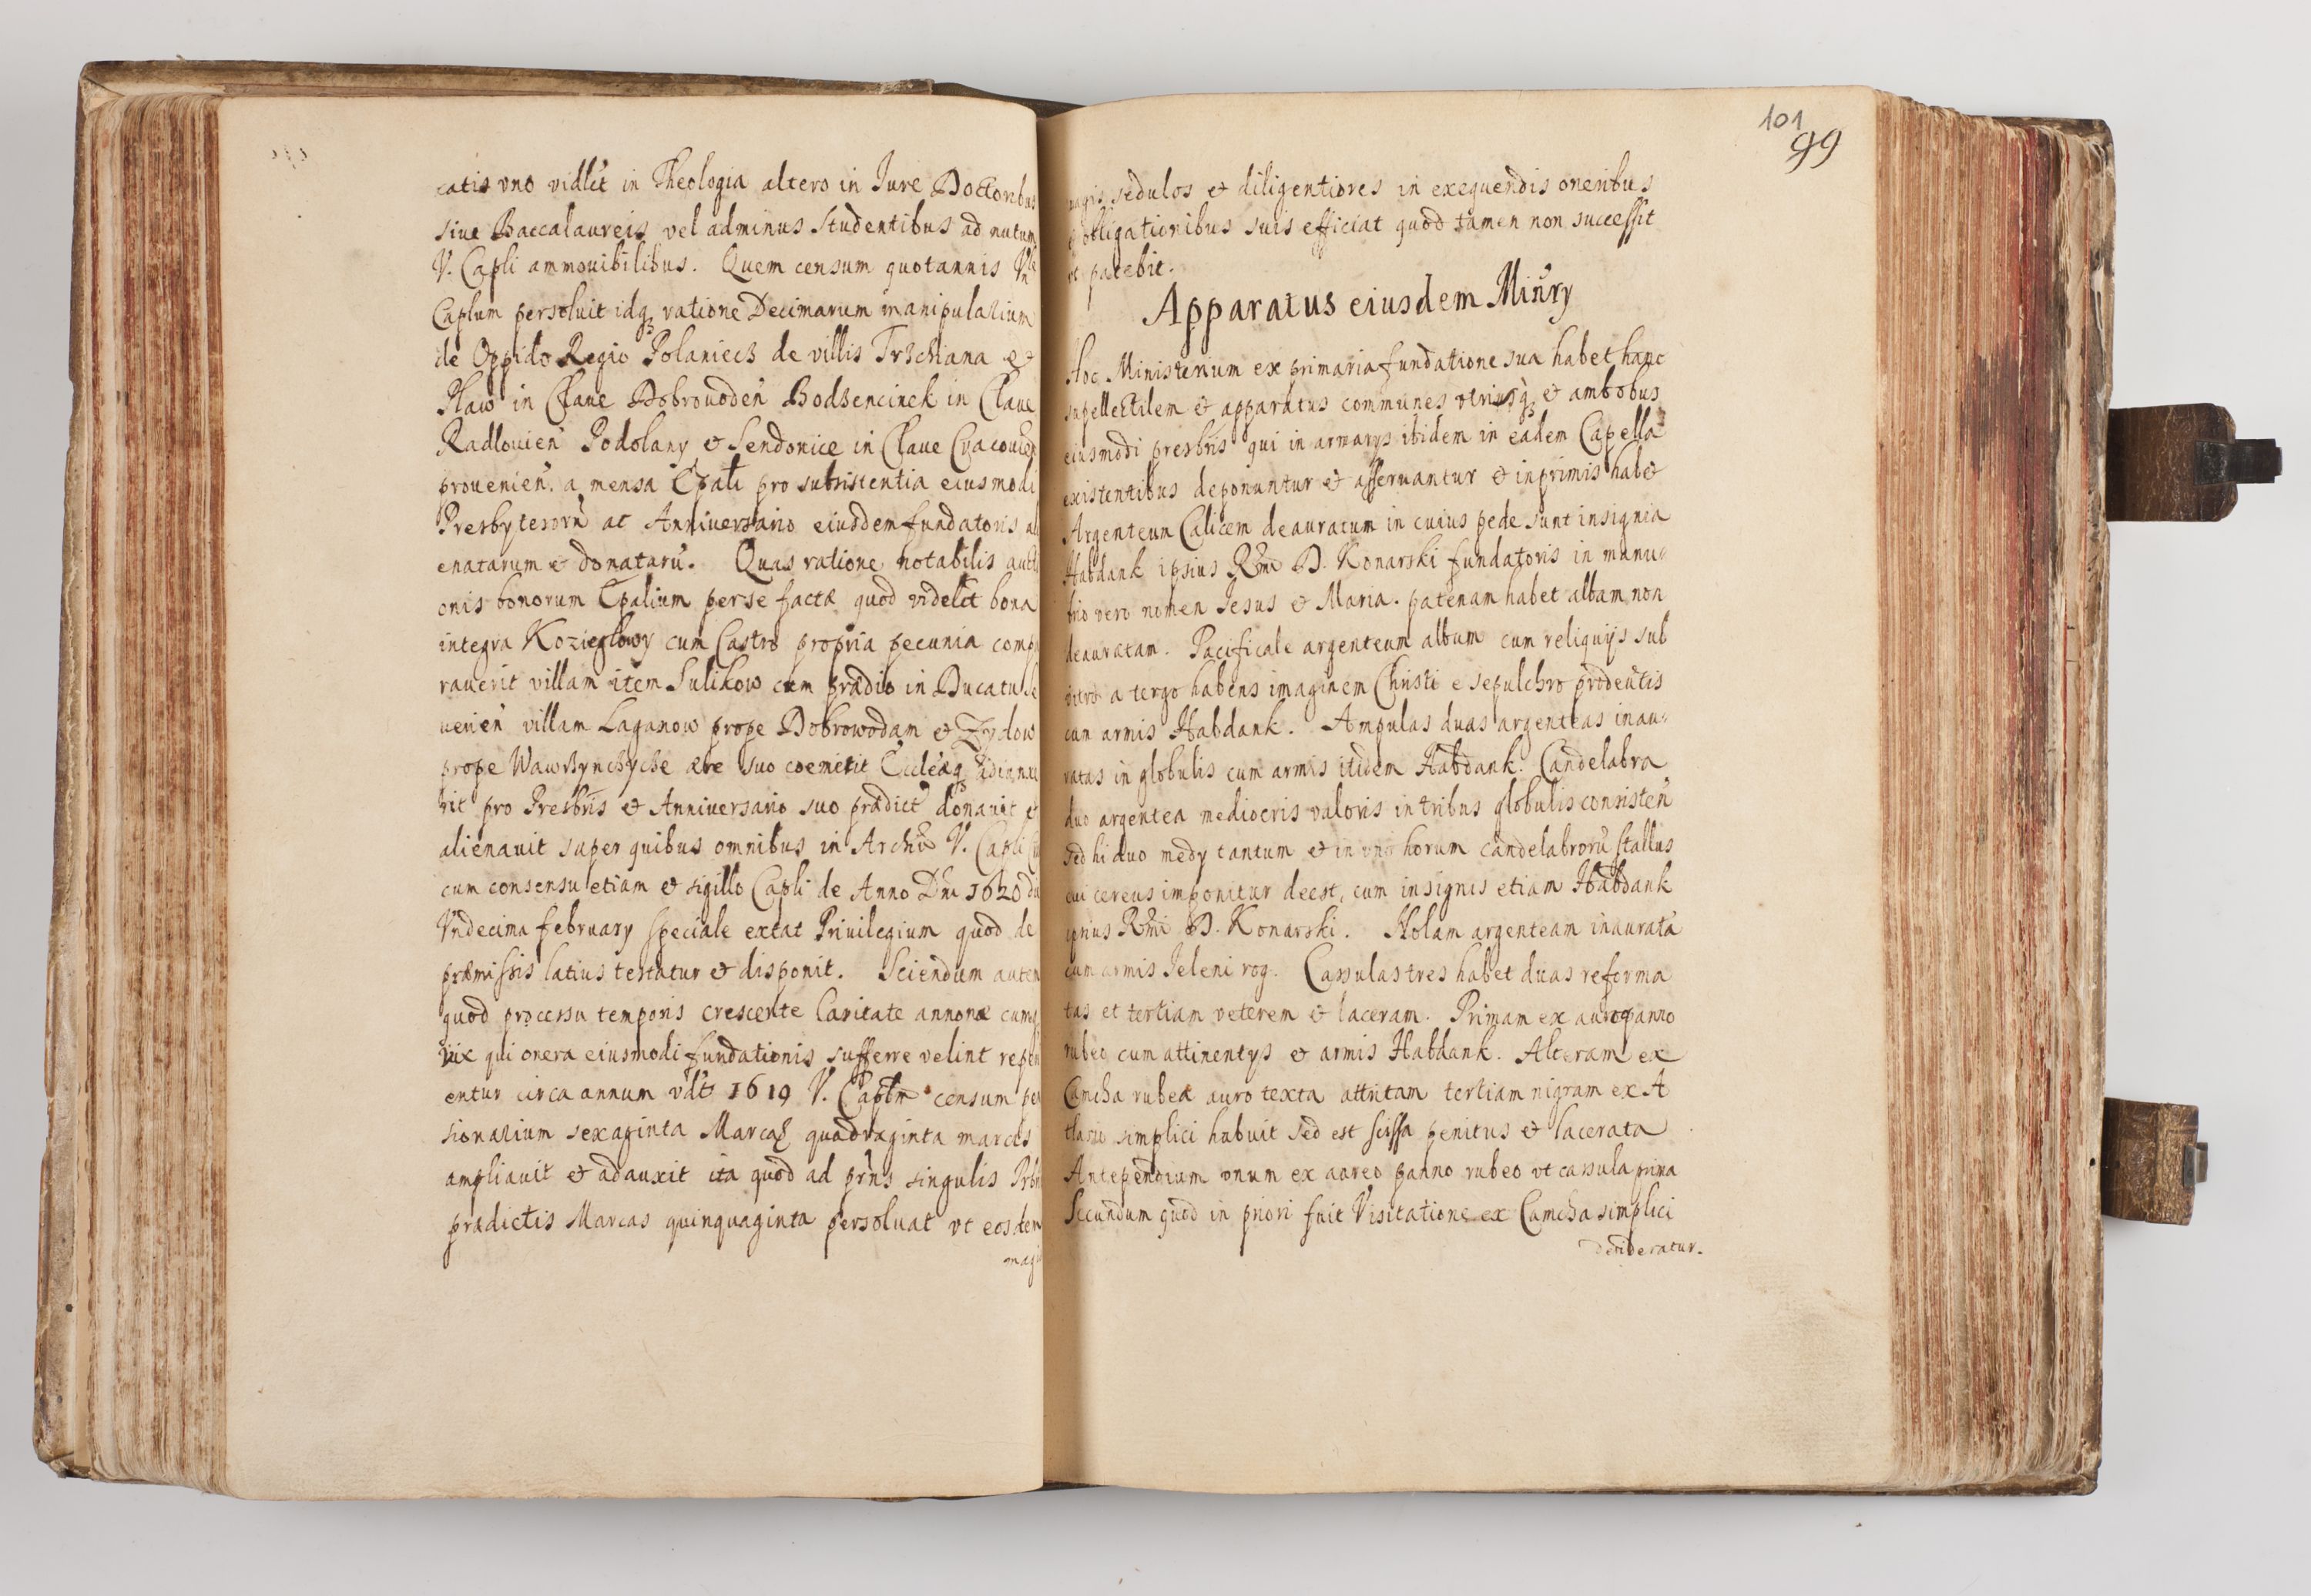 catis vno vidlet in Theologia altero in Jure Doctoribus
siue Baccalaureis vel adminus Studentibus ad nutum
V. Capli ammouibilibus. Quem censum quotannis Vnle
Caplum persoluit idq ratione Decimarum manipularium
de Oppido Regio Polaniecz de villis Trzchiana et
Plaw in Claue Dobrouoden Bodzencinek in Claue
Radlouien Podolany et Sendonice in Claue Cracouien
prouenien. a mensa Epali pro subsistentia eiusmodi
Presbyterorũ ac Anniversario eiusdem fundatoris
enatarum et donatarũ. Quas ratione notabilis
onis bonorum Epalium per se factæ quod videlet bona
integra Kozieglowy cum Castro propria pecunia comp
rauerit villam item Sulikow cum prædio in Ducatu
uerien villam Łaganow prope Dobrowodam et Zydow
prope Wawrzynczycze ære suo coemerit Eccleæq
rit pro Presbris et Anniversario suo prædict donauit et
alienauit super quibus omnibus in Archiuo V. Capli
cum consensu etiam et sigillo Capli de Anno Dni 1620 die
Vndecima february speciale extat Priuilegium quod de
præmissis latius testatur et disponit. Sciendum autem
quod processu temporis crescente Caritate annonæ cumq
uix qui onera eiusmodi fundationis sufferre velint
entur circa annum vdlt 1619 V. Captm censum
sionarium sexaginta Marcas quadraginta marcis
ampliauit et adauxit ita quod ad prns singulis Prbris
prædictis Marcas quinquaginta persoluat vt eosdem
magis
101
99
magis sedulos et diligentiores in exequendis oneribus
et obligationibus suis efficiat quod tamen non successit
vt patebit.
Apparatus eiusdem Minry
Hoc Ministerium ex primaria fundatione sua habet hanc
supellectilem et apparatus communes vtriusq et ambobus
eiusmodi presbris qui in armarys ibidem in eadem Capella
existentibus deponuntur et asseruantur et inprimis habet
Argenteum Calicem deauratum in cuius pede sunt insignia
Habdank ipsius Rdmi D. Konarski fundatoris in manu-
brio vero nomen Jesus et Maria. patenam habet albam non
deauratam. Pacificale argenteum album cum reliquijs sub
vitro a tergo habens imaginem Christi e sepulchro prodeũtis
cum armis Habdank. Ampulas duas argenteas inau-
ratas in globulis cum armis itidem Habdank. Candelabra
duo argentea mediocris valoris in tribus globulis consisten
sed hi duo medy tantum et in vno horum candelabrorũ stallus
cui cereus imponitur deest, cum insignis etiam Habdank
ipsius Rdmi D. Konarski. Nolam argenteam inauratã
cum armis Jeleni rog. Cassulas tres habet duas reforma
tas et tertiam veterem et laceram. Primam ex auro panno
rubeo cum attinentys et armis Habdank. Alteram ex
Camcha rubea auro texta attritam tertiam nigram ex A
tlasu simplici habuit sed est scissa penitus et lacerata
Antependium vnum ex aureo panno rubeo vt cassula prima
Secundum quod in priori fuit Visitatione ex Camcha simplici
desideratur.